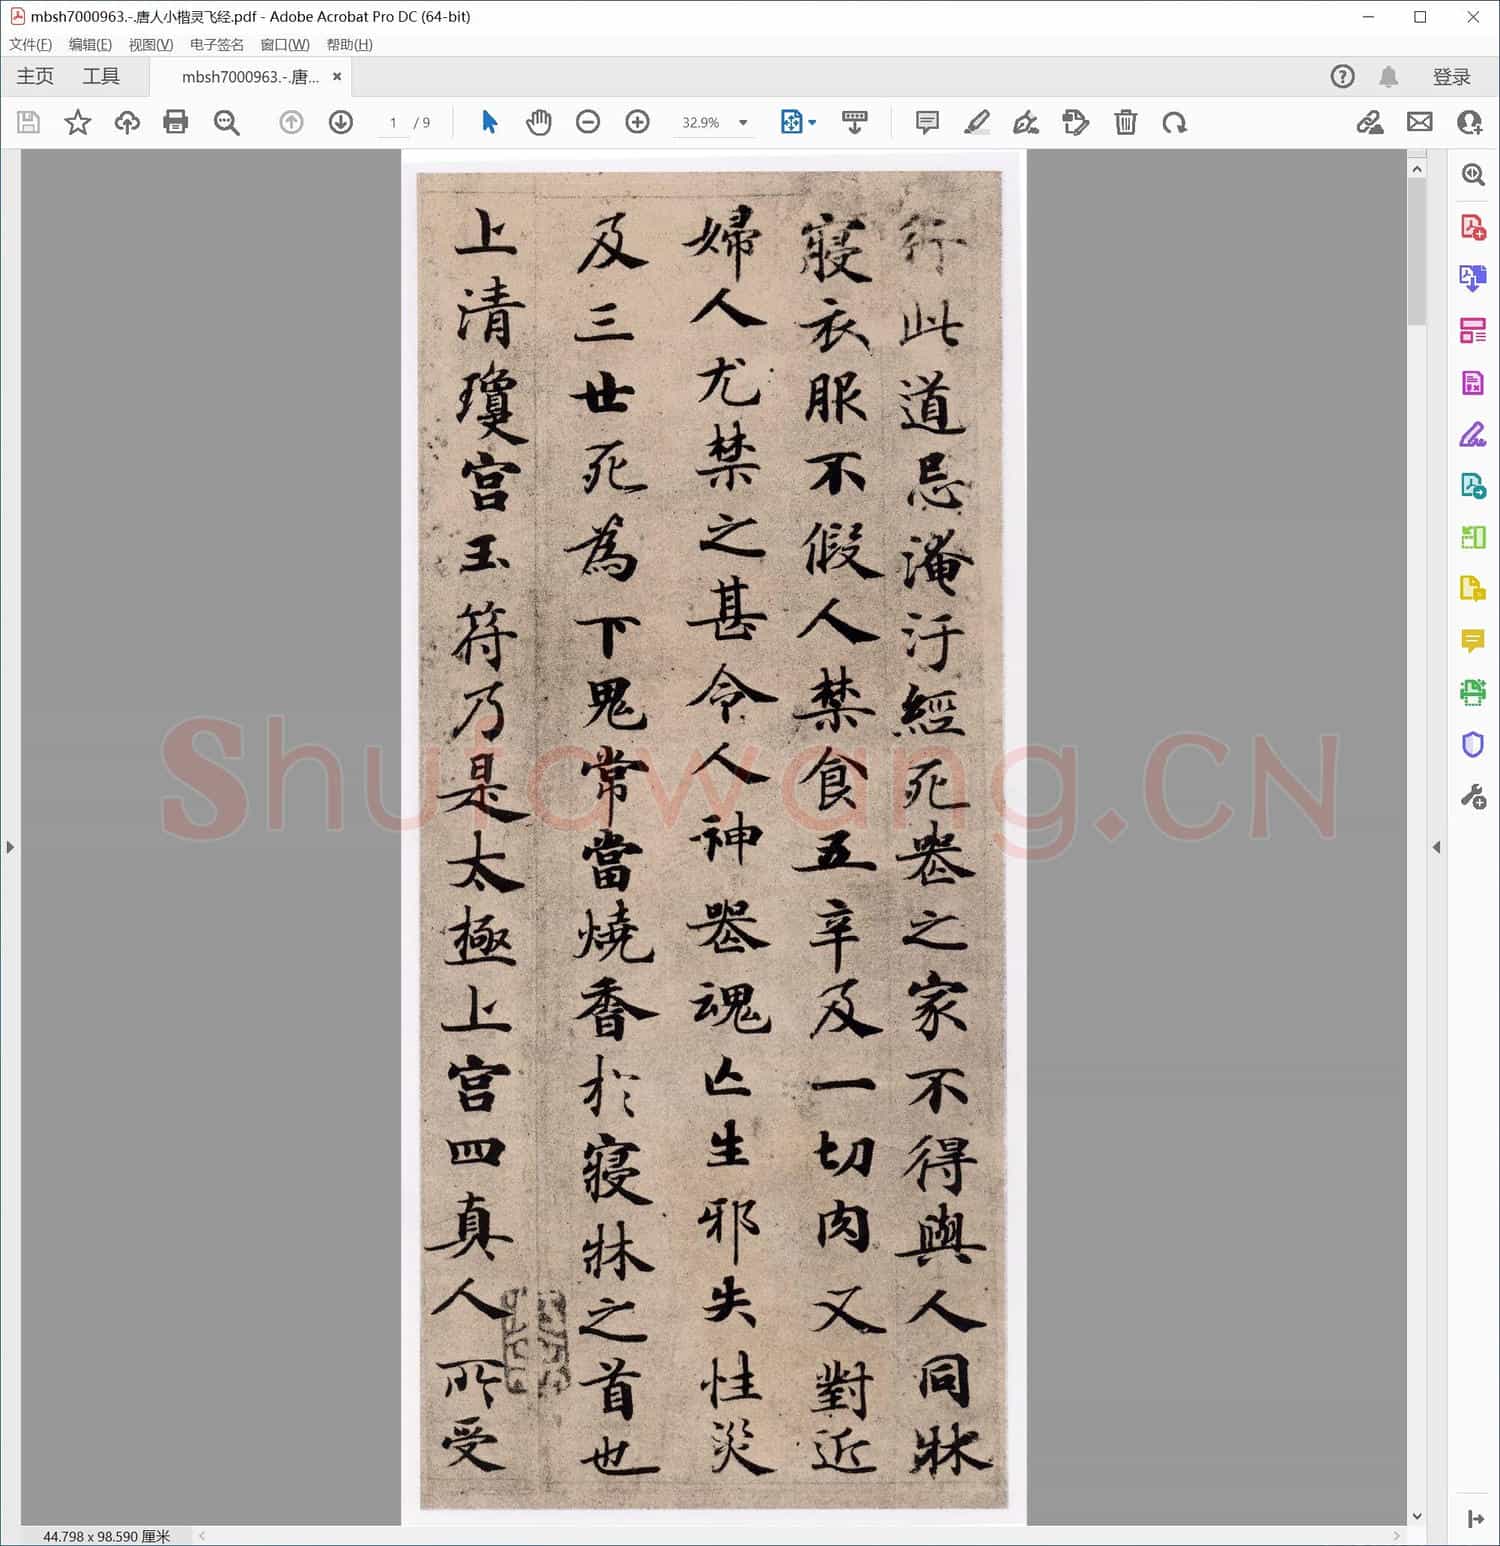 mbsh7000963.-.唐人小楷灵飞经.pdf - Adobe Acrobat Pro DC (64-bit)
文件(F) 编辑(E) 视图(V) 电子签名 窗口(W) 帮助(H)
主页 工具 mbsh7000963.-.唐... × 登录
1 / 9 32.9%
行此道忌淹汙經死喪之家不得與人同牀
寢衣服不假人禁食五辛及一切肉又對近
婦人尤禁之甚令人神喪魂亡生邪失性災
及三世死為下鬼常當燒香於寢牀之首也
上清瓊宮玉符乃是太極上宮四真人所受
Shufawang.CN
44.798 x 98.590 厘米